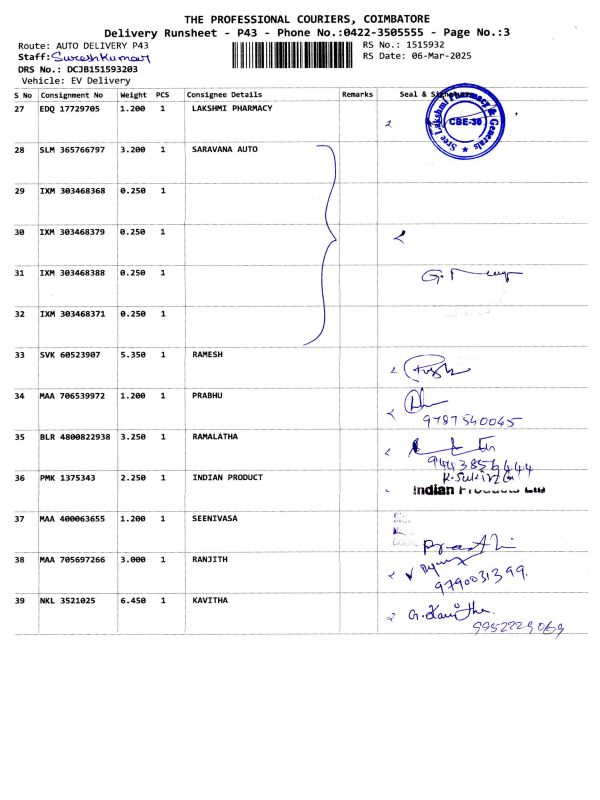 THE PROFESSIONAL COURIERS, COIMBATORE
Delivery Runsheet - P43 - Phone No.:0422-3505555 - Page No.:3
Route: AUTO DELIVERY P43 RS No.: 1515932
Staff: SureshKumar RS Date: 06-Mar-2025
DRS No.: DCJB151593203
Vehicle: EV Delivery
S No Consignment No Weight PCS Consignee Details Remarks Seal &
27 EDQ 17729705 1.200 1 LAKSHMI PHARMACY
Sree Lakshmi Pharmacy & Generals
CBE-30
28 SLM 365766797 3.200 1 SARAVANA AUTO
29 IXM 303468368 0.250 1
30 IXM 303468379 0.250 1
31 IXM 303468388 0.250 1 G.
32 IXM 303468371 0.250 1
33 SVK 60523907 5.350 1 RAMESH
34 MAA 706539972 1.200 1 PRABHU
9787540045
35 BLR 4800822938 3.250 1 RAMALATHA
9443856444
36 PMK 1375343 2.250 1 INDIAN PRODUCT
Indian Products Ltd
37 MAA 400063655 1.200 1 SEENIVASA
38 MAA 705697266 3.000 1 RANJITH
9790031399.
39 NKL 3521025 6.450 1 KAVITHA G.Kavitha.
9952229069